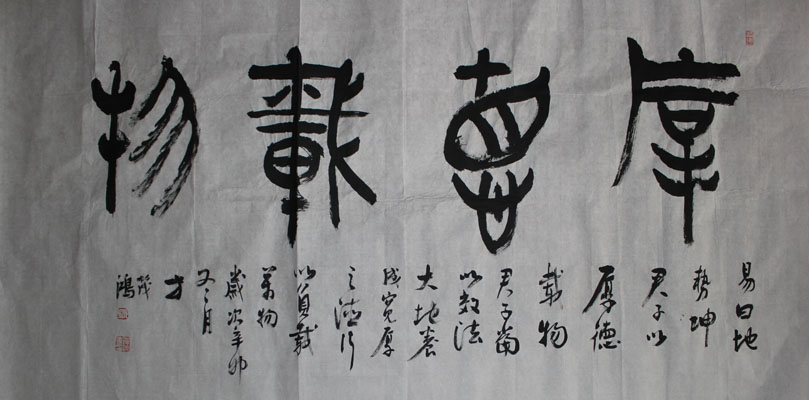 厚悳載物
易曰地
勢坤
君子以
厚德
載物
君子當
以效法
大地養
成寬厚
之德行
以負載
萬物
歲次辛卯
鴻